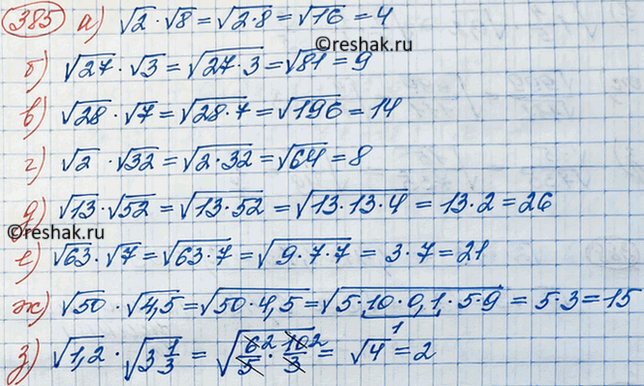 385 а) √2 · √8 = √(2·8) = √16 = 4
©reshak.ru
б) √27 · √3 = √(27·3) = √81 = 9
в) √28 · √7 = √(28·7) = √196 = 14
г) √2 · √32 = √(2·32) = √64 = 8
д) √13 · √52 = √(13·52) = √(13·13·4) = 13·2 = 26
©reshak.ru
е) √63 · √7 = √(63·7) = √(9·7·7) = 3·7 = 21
ж) √50 · √4,5 = √(50·4,5) = √(5·10·0,1·5·9) = 5·3 = 15
1
з) √1,2 · √(3 1/3) = √(6²/5 · 10²/3) = √4 = 2